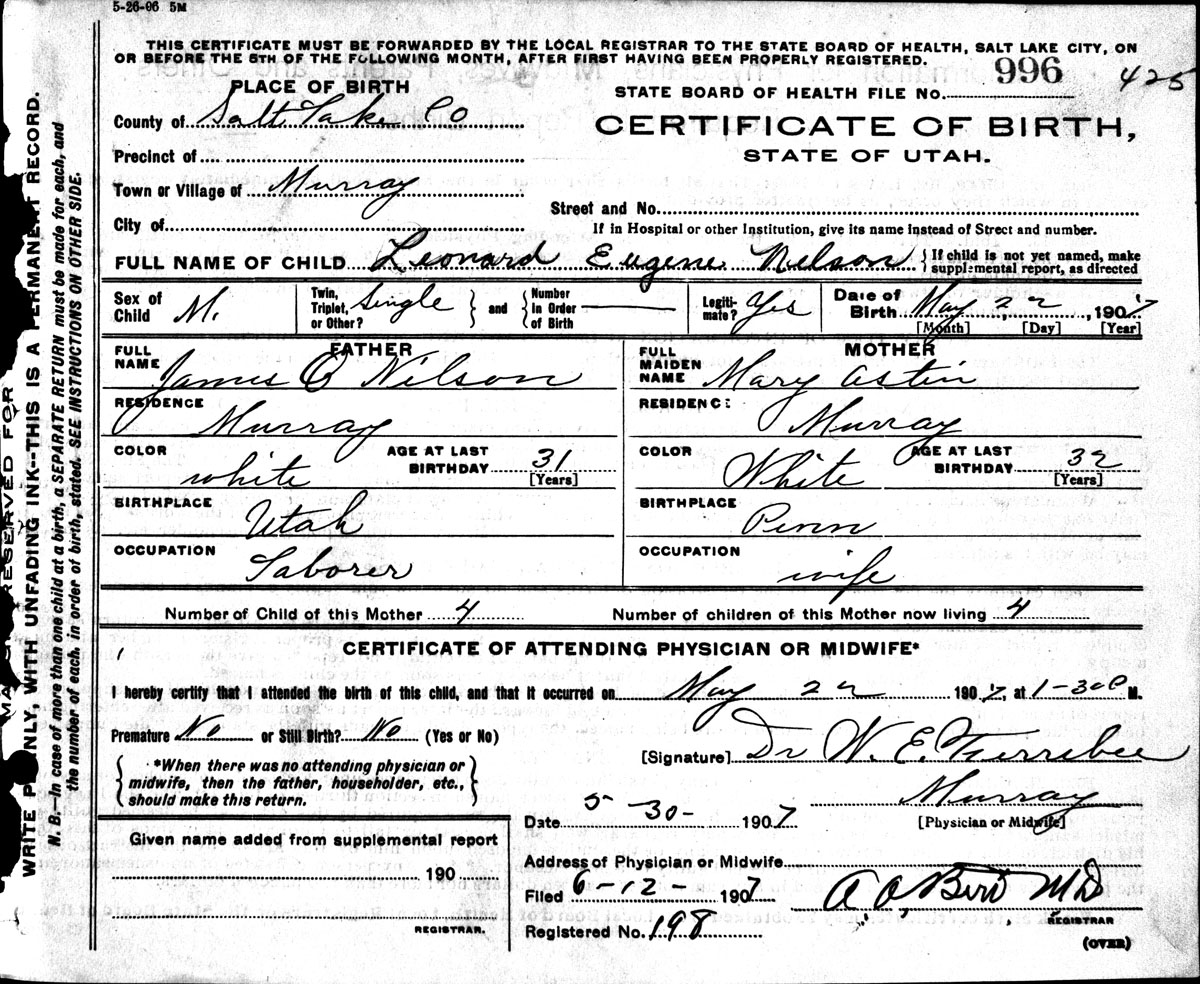 5-26-06 5M
THIS CERTIFICATE MUST BE FORWARDED BY THE LOCAL REGISTRAR TO THE STATE BOARD OF HEALTH, SALT LAKE CITY, ON
OR BEFORE THE 5TH OF THE FOLLOWING MONTH, AFTER FIRST HAVING BEEN PROPERLY REGISTERED.
996
425
STATE BOARD OF HEALTH FILE No.
PLACE OF BIRTH
County of Salt Lake Co
CERTIFICATE OF BIRTH,
STATE OF UTAH.
Precinct of
Town or Village of Murray
Street and No.
City of
If in Hospital or other Institution, give its name instead of Street and number.
FULL NAME OF CHILD Leonard Eugene Nelson { If child is not yet named, make
supplemental report, as directed
Sex of Child M. Twin, Triplet, or Other? Single } and { Number In Order of Birth Legiti-mate? Yes Date of Birth May 22, 1907
[Month] [Day] [Year]
FATHER
FULL NAME James O Nilson
MOTHER
FULL MAIDEN NAME Mary Astin
RESIDENCE Murray
RESIDENC: Murray
COLOR white AGE AT LAST BIRTHDAY 31 [Years]
COLOR White AGE AT LAST BIRTHDAY 32 [Years]
BIRTHPLACE Utah
BIRTHPLACE Penn
OCCUPATION Laborer
OCCUPATION wife
Number of Child of this Mother 4 Number of children of this Mother now living 4
CERTIFICATE OF ATTENDING PHYSICIAN OR MIDWIFE*
I hereby certify that I attended the birth of this child, and that it occurred on May 22 1907, at 1-30 P M.
Premature No or Still Birth? No (Yes or No)
[Signature] Dr W. E.
{ *When there was no attending physician or
midwife, then the father, householder, etc.,
should make this return. }
Murray
[Physician or Midwife]
Date 5-30- 1907
Given name added from supplemental report
190
REGISTRAR.
Address of Physician or Midwife
Filed 6-12- 1907
M D
REGISTRAR
Registered No. 198
(OVER)
RESERVED FOR
WRITE PLAINLY, WITH UNFADING INK--THIS IS A PERMANENT RECORD.
N. B.—In case of more than one child at a birth, a SEPARATE RETURN must be made for each, and
the number of each, in order of birth, stated. SEE INSTRUCTIONS ON OTHER SIDE.